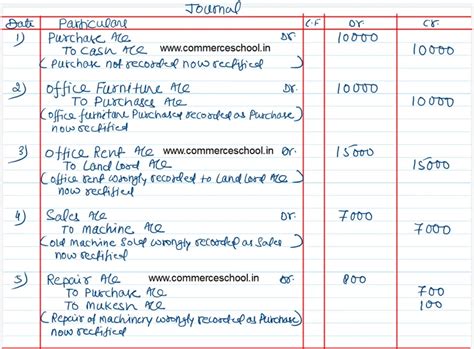 Journal
Date Particulars L.F Dr. Cr.
1) Purchase A/c www.commerceschool.in Dr. 10000
To Cash A/c 10000
(Purchase not recorded now rectified)
2) Office Furniture A/c Dr. 10000
To Purchases A/c 10000
(office furniture Purchased recorded as Purchase)
now rectified
3) Office Rent A/c www.commerceschool.in Dr. 15000
To Land Lord A/c 15000
(office rent wrongly recorded to Land Lord A/c
now rectified
4) Sales A/c Dr. 7000
To machine A/c 7000
(old machine Sold wrongly recorded as Sales
now rectified
5) Repair A/c www.commerceschool.in Dr. 800
To Purchase A/c 700
To Mukesh A/c 100
(Repair of machinery wrongly recorded as Purchase)
now rectified